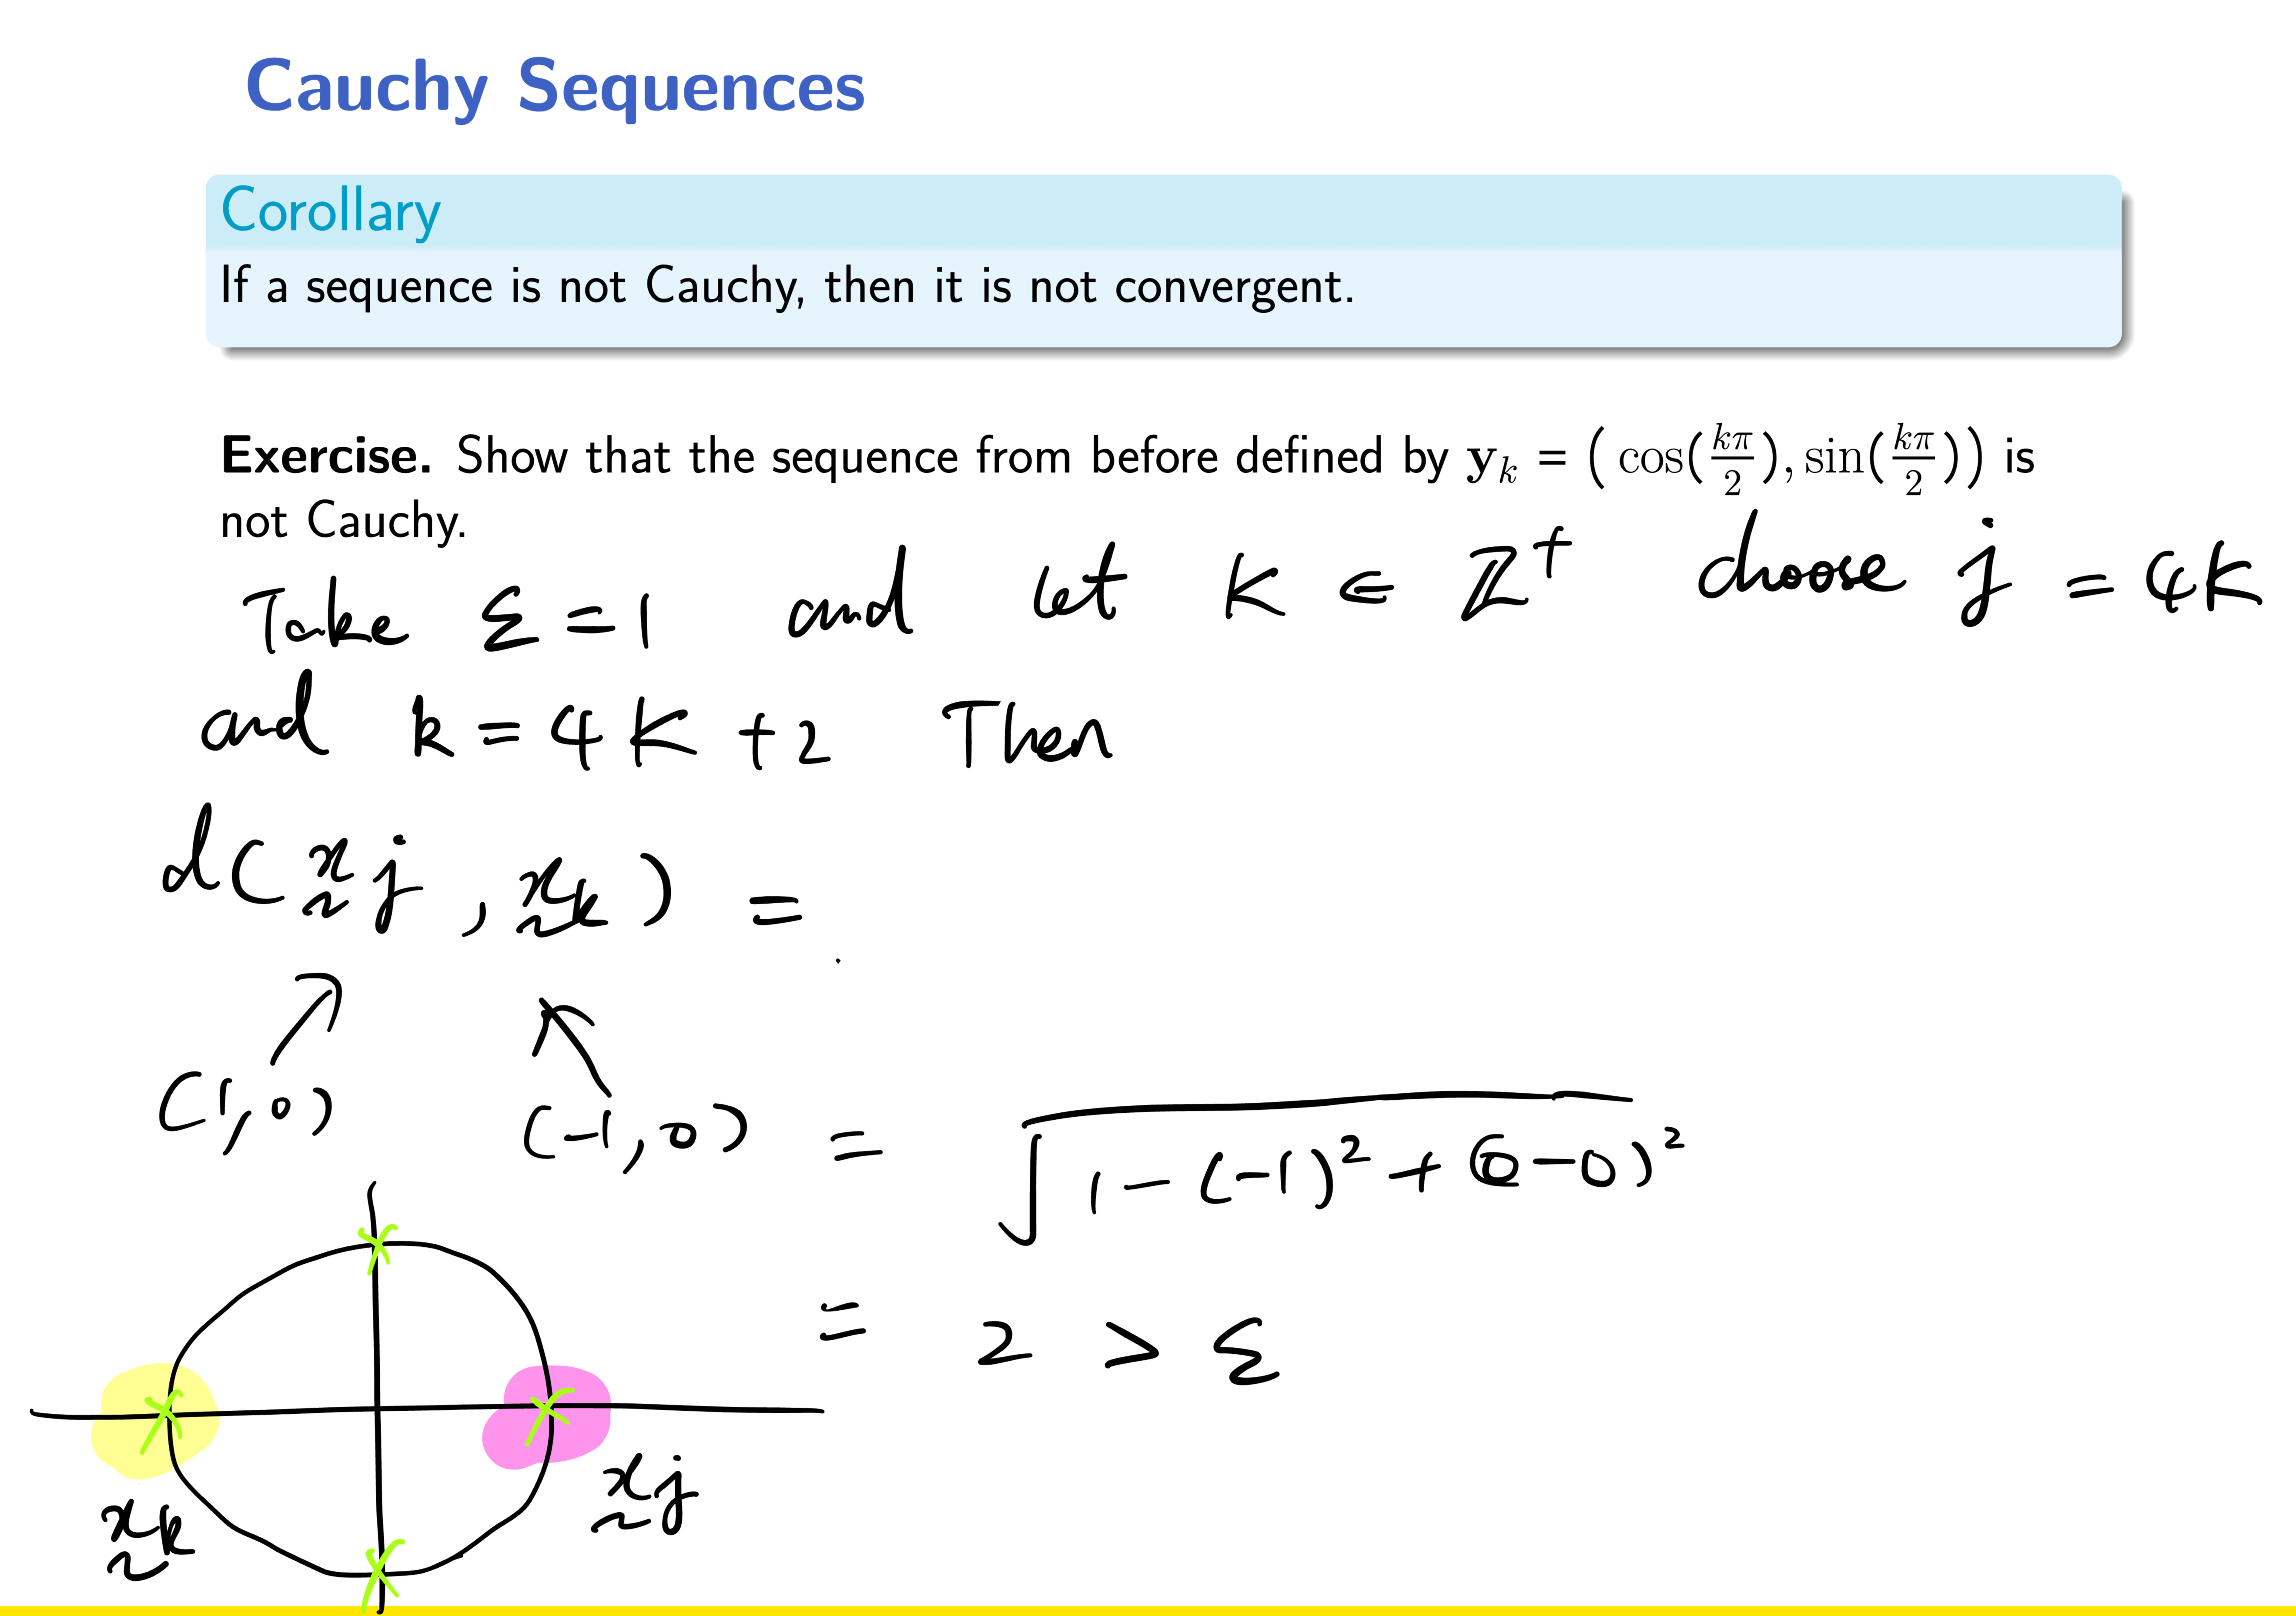 Cauchy Sequences
Corollary
If a sequence is not Cauchy, then it is not convergent.
Exercise. Show that the sequence from before defined by 𝐲ₖ = ( cos(kπ/2), sin(kπ/2)) is
not Cauchy.
Take ε = 1 and let K ∈ ℤ⁺ choose j = 4K
and k = 4K + 2 Then
d(x̰ j , x̰ k) =
(1,0)
(-1,0) = √(1 - (-1)² + (0-0)²
= 2 > ε
x̰ j
x̰ k